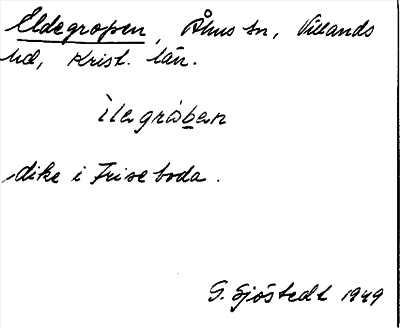 Eldegropen, Åhus sn, Villands
hd, Krist. län.
ìlagrȧben
dike i Friseboda.
G. Sjöstedt 1949